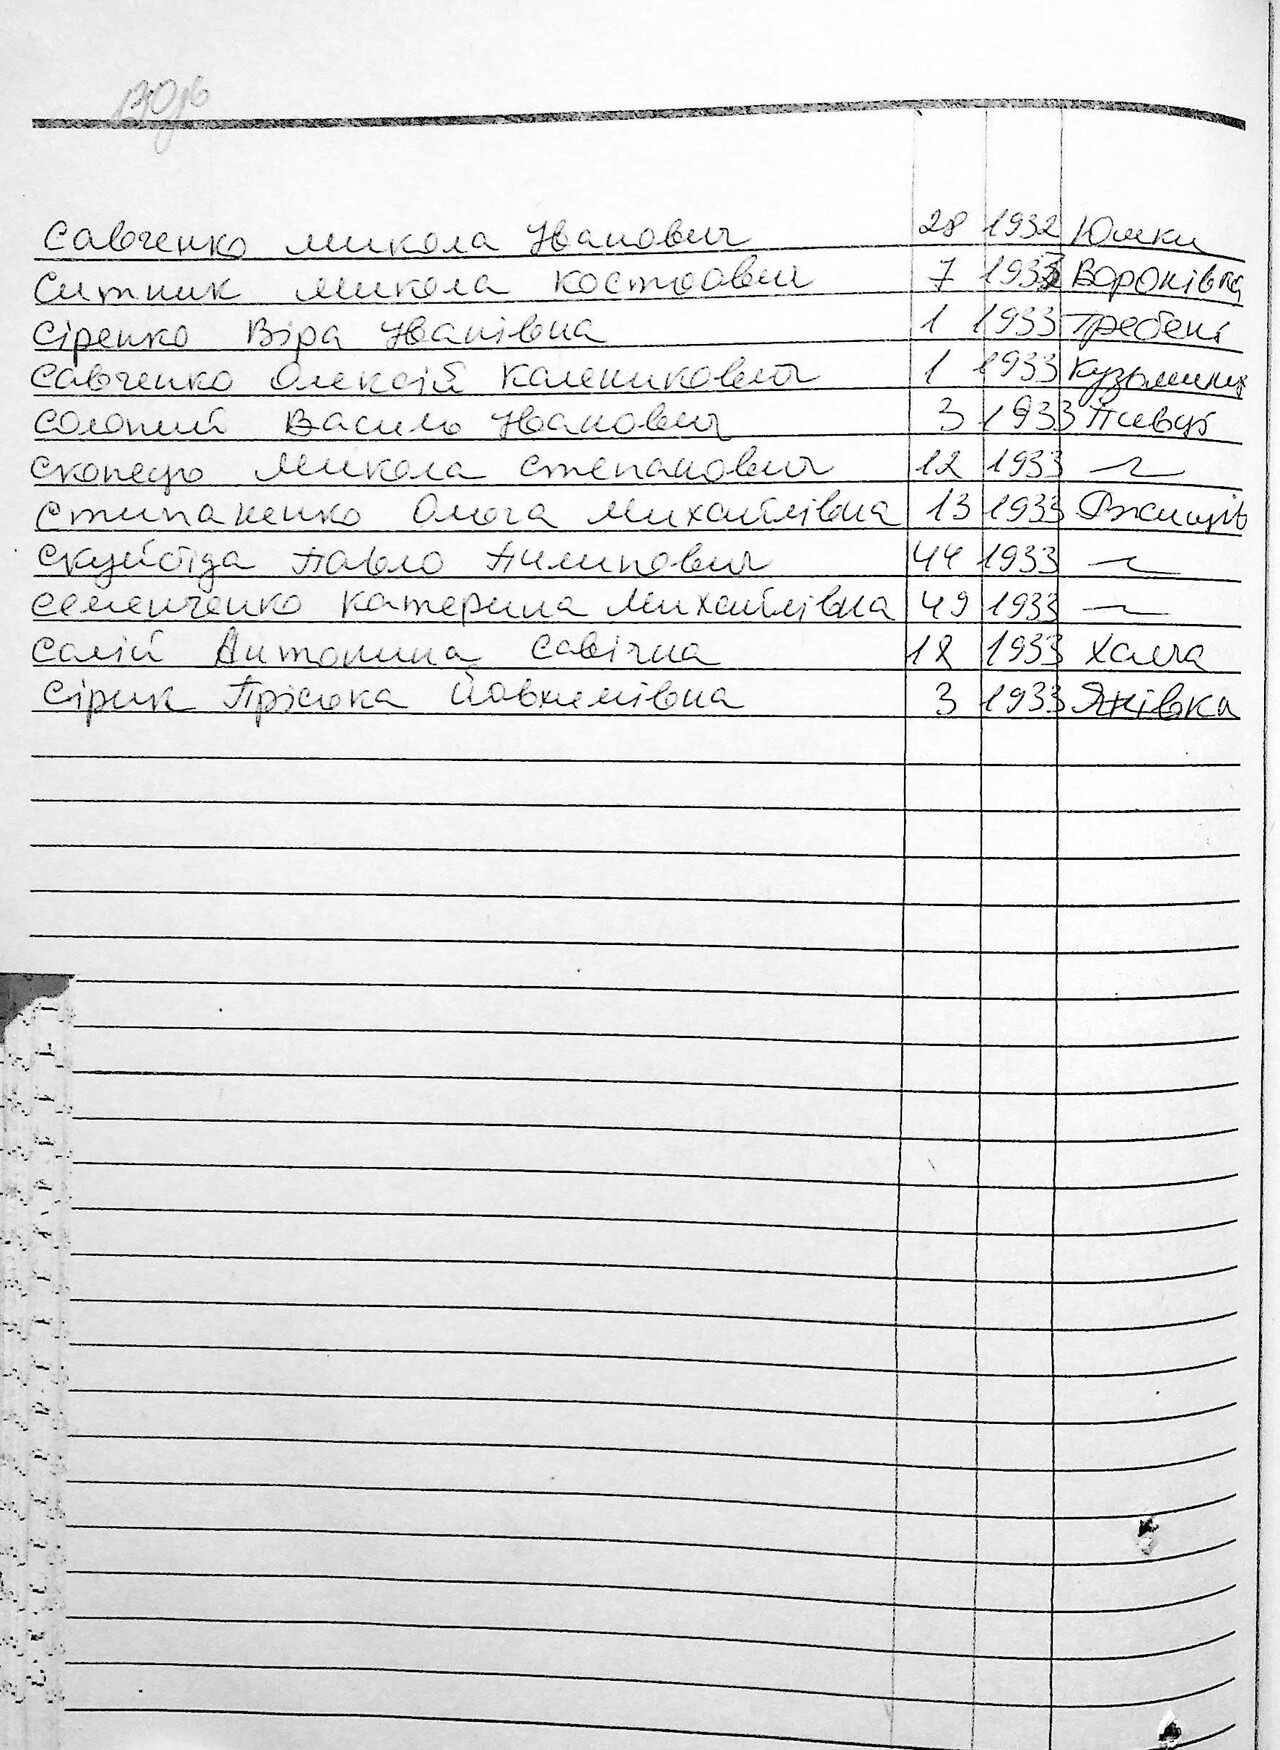 Савченко Микола Іванович 28 1932 Юшки
Ситник Микола Костьович 7 1933 Воронівка
Сіренко Віра Іванівна 1 1933 Гребені
Савченко Олексій Каленикович 1 1933 Кузьминці
Солопий Василь Іванович 3 1933 Півці
Скопець Микола Степанович 12 1933 —"—
Стипаненко Ольга Михайлівна 13 1933 Ржищів
Павло Пилипович 44 1933 —"—
Семенченко Катерина Михайлівна 49 1933 —"—
Салій Антонина Савічна 18 1933 Халча
Сірик Пріська Йовхимівна 3 1933 Янівка